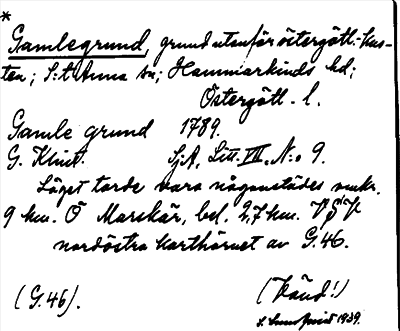 *
Gamlegrund, grund utanför östergötl. kus-
ten; S:t Anna sn; Hammarkinds hd;
Östergötl. l.
Gamle grund 1789.
G. Klint. Sj.A, Litt. VII, N:o 9.
Läget torde vara någonstädes omkr.
9 km. Ö Marskär, bel. 2,7 km. VSV
nordöstra karthörnet av G.46.
(G.46). (Känd!)
1939.